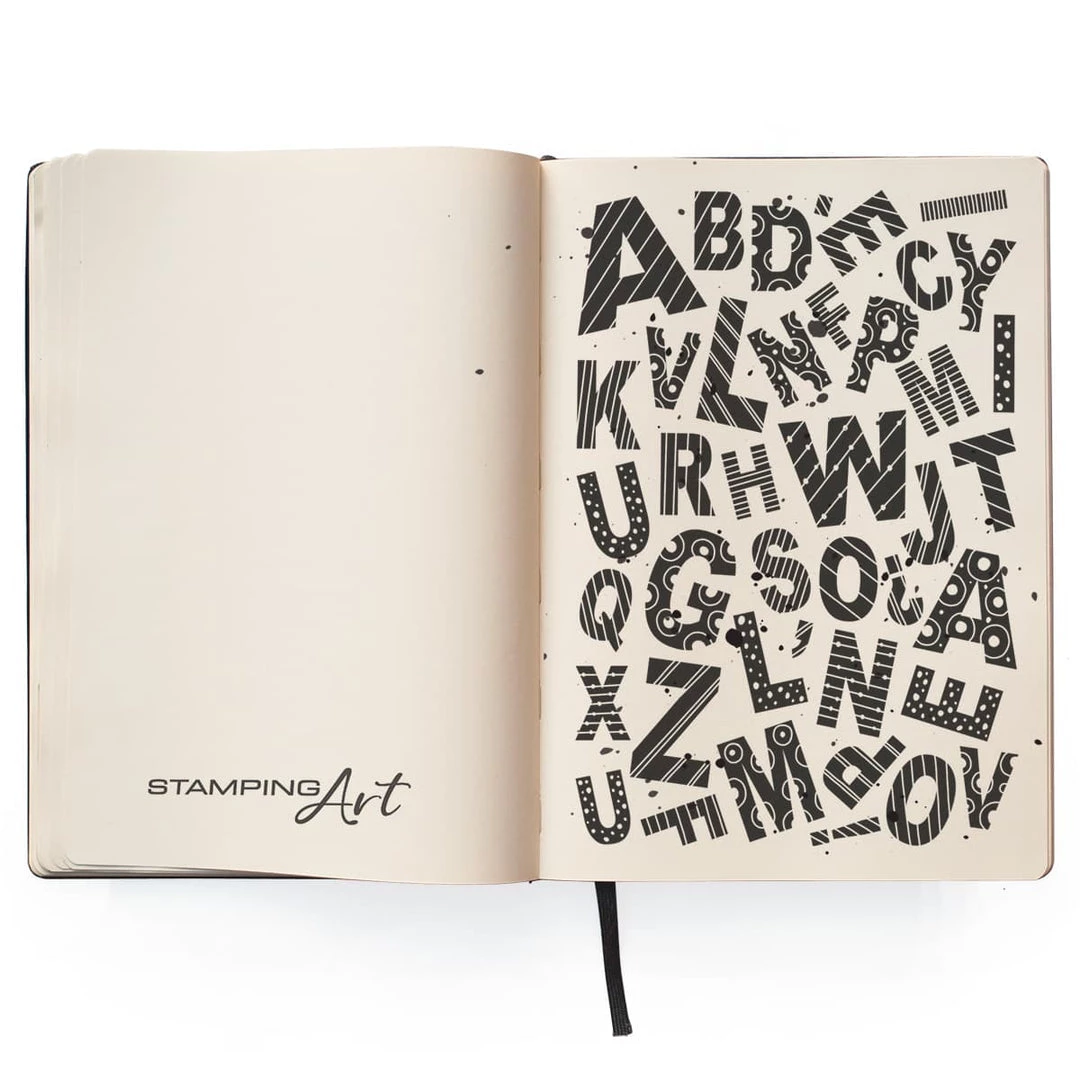 STAMPING Art
A B D ' E I
C Y
K V L N F P M I
R H W J T
U
Q G S O ; A
X Z L ' N E
U F M ! R O V